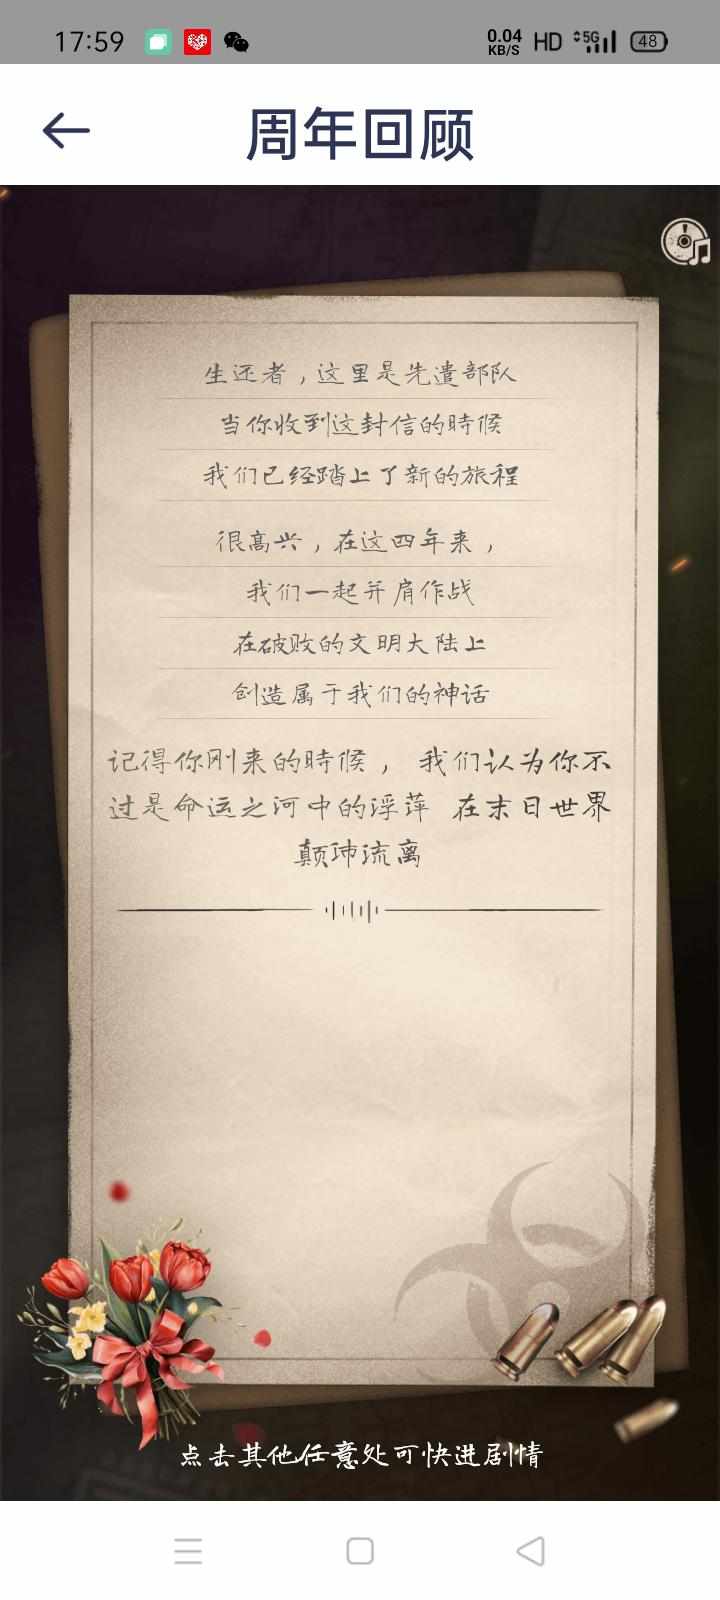 17:59
0.04 KB/S HD 5G 48
周年回顾
生还者，这里是先遣部队
当你收到这封信的時候
我们已经踏上了新的旅程
很高兴，在这四年来，
我们一起并肩作战
在破败的文明大陆上
创造属于我们的神话
记得你刚来的時候， 我们认为你不
过是命运之河中的浮萍 在末日世界
颠沛流离
点击其他任意处可快进剧情